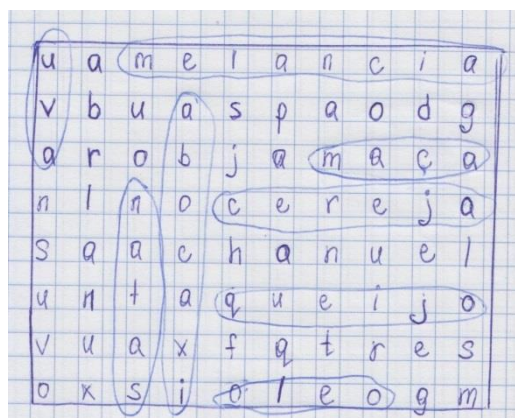 u a m e l a n c i a
v b u a s p a o d g
a r o b j a m a ç a
n l n o c e r e j a
s a a c h a n u e l
u n t a q u e i j o
v u a x f q t r e s
o x s i o l e o g m